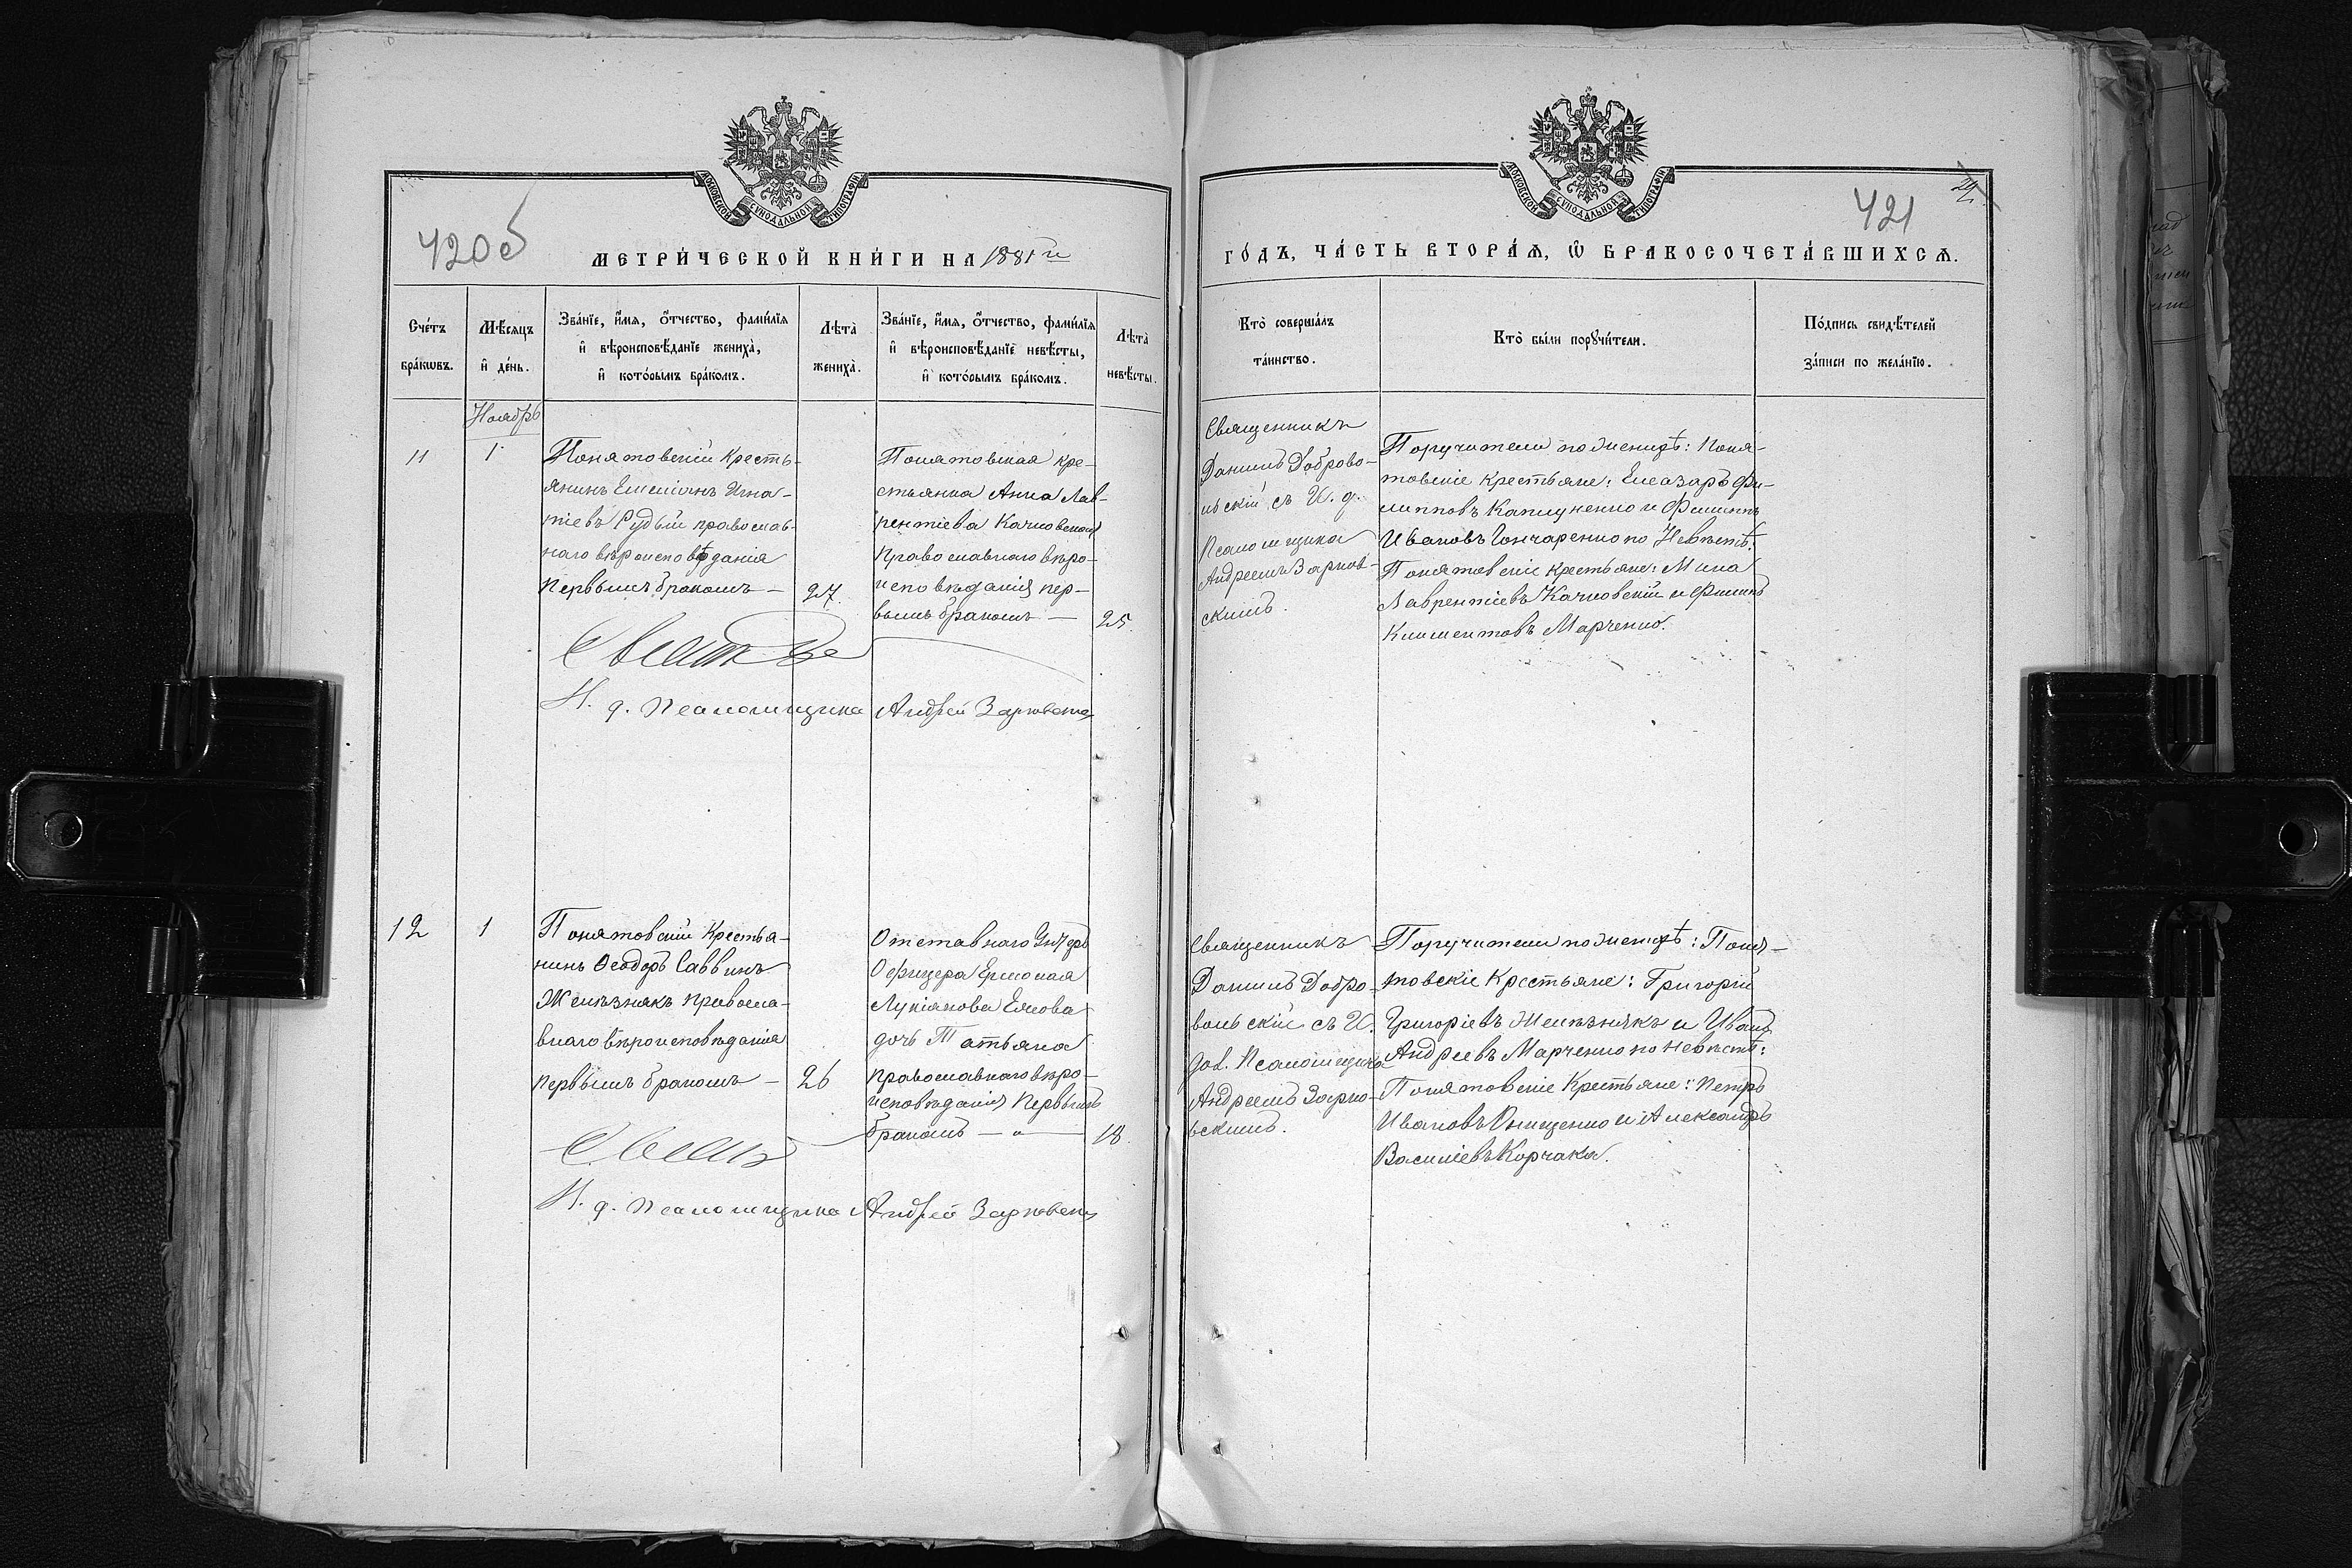 МОСКОВСКОЙ СѴНОДАЛЬНОЙ ТИПОГРАФІИ
420об
МЕТРИ́ЧЕСКОЙ КНИ́ГИ НА 1881й
Сче́тъ бра́кѡвъ.
Мѣ́сяцъ и҆ де́нь.
Зва́нїе, и҆́мя, ѻ҆́тчество, фами́лїя
и҆ вѣроисповѣ́данїе жениха̀,
и҆ кото́рымъ бра́комъ.
Лѣта̀ жениха̀.
Зва́нїе, и҆́мя, ѻ҆́тчество, фами́лїя
и҆ вѣроисповѣ́данїе невѣ́сты,
и҆ кото́рымъ бра́комъ.
Лѣта̀ невѣ́сты.
Ноябрь
11
1
Понятовскій кресть-
янинъ Емеліянъ Игна-
тіевъ Рудый православ-
наго вѣроисповѣданія
первымъ бракомъ —
27.
Понятовская кре-
стьянка Анна Лав-
рентіева Качковская
православнаго вѣро-
исповѣданія пер-
вымъ бракомъ —
25.
И. д. Псаломщика Андрей Зарковскій
12
1
Понятовскій Крестья-
нинъ Ѳеодоръ Саввинъ
Желѣзнякъ правосла-
внаго вѣроисповѣданія
первымъ бракомъ —
26
Отставнаго Унтеръ
Офицера Ермолая
Лукіянова
дочь Татьяна
православнаго вѣро-
исповѣданія Первымъ
бракомъ — " —
18.
И. д. Псаломщика Андрей Зарковскій
МОСКОВСКОЙ СѴНОДАЛЬНОЙ ТИПОГРАФІИ
421
ГО́ДЪ, ЧА́СТЬ ВТОРА́Я, Ѡ҆ БРАКОСОЧЕТА́ВШИХСЯ.
Кто̀ соверша́лъ
та́инство.
Кто̀ бы́ли порꙋчи́тели.
По́дпись свидѣ́телей
за́писи по жела́нїю.
Священникъ
Даніилъ Доброво-
льскій съ И. д.
Псаломщика
Андреемъ Зарков-
скимъ.
Поручители по женихѣ: Поня-
товскіе крестьяне: Елеазаръ Фи-
липповъ Капшученко и Филиппъ
Ивановъ Гончаренко по Невѣстѣ:
Понятовскіе крестьяне: Мина
Лаврентіевъ Качковскій и Филиппъ
Климентовъ Марченко.
Священникъ
Даніилъ Добро-
вольскій съ И.
дол. Псаломщика
Андреемъ Зарко-
вскимъ.
Поручители по женихѣ: Поня-
товскіе Крестьяне: Григорій
Григоріевъ Желѣзнякъ и Иванъ
Андреевъ Марченко по невѣстѣ:
Понятовскіе Крестьяне: Петръ
Ивановъ и Александръ
Василіевъ Корчака.